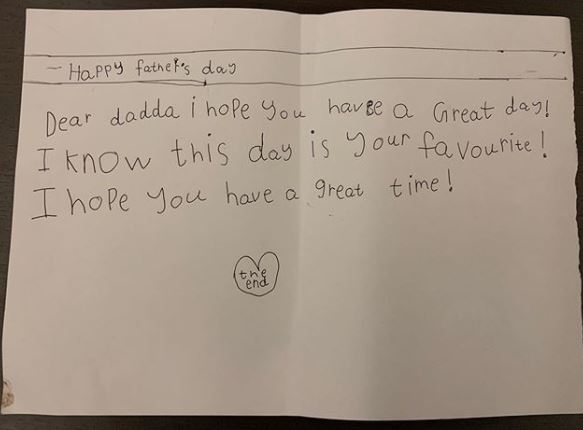 - Happy father's day
Dear dadda i hope you have a Great day!
I know this day is your favourite!
I hope you have a great time!
the
end